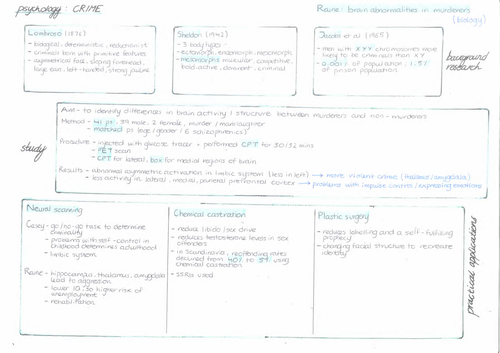 psychology: CRIME
Raine: brain abnormalities in murderers
(biology)
Lombroso (1876)
- biological, deterministic, reductionist
- criminals born with primitive features
- asymmetrical face, sloping forehead,
large ears, left-handed, strong jawline
Sheldon (1942)
- 3 body types:
- ectomorph, endomorph, mesomorph
- mesomorphs muscular, competitive,
bold, active, dominant, criminal
Jacobs et al (1965)
- men with XYY chromosomes more
likely to be criminals than XY
- 0.001% of population: 1.5%
of prison population
background
research
study
Aim - to identify differences in brain activity / structure between murderers and non-murderers
Method - 41 ps: 39 male, 2 female, murder / manslaughter
- matched ps (age / gender / 6 schizophrenics)
Procedure - injected with glucose tracer - performed CPT for 30/32 mins
- PET scan
- CPT for lateral, box for medial regions of brain
Results - abnormal asymmetric activation in limbic system (less in left) → more violent crime (thalamus/amygdala)
- less activity in lateral, medial, prefrontal cortex → problems with impulse control / expressing emotions
Neural scanning
Casey - go/no-go task to determine
criminality
- problems with self-control in
childhood determines adulthood
- limbic system
Raine - hippocampus, thalamus, amygdala
lead to aggression
- lower IQ so higher risk of
unemployment
- rehabilitation
Chemical castration
- reduce libido / sex drive
- reduces testosterone levels in sex
offenders
- in Scandinavia, reoffending rates
decreased from 40% to 5% using
chemical castration
- SSRIs used
Plastic surgery
- reduces labelling and a self-fulfilling
prophecy
- changing facial structure to recreate
identity
practical applications